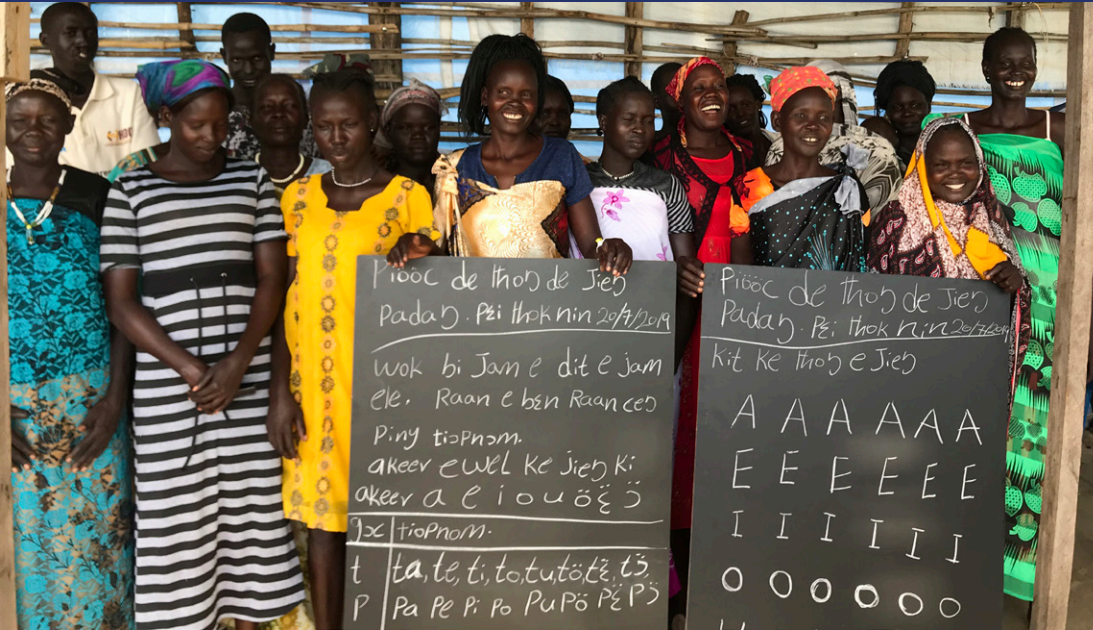 Piööc de thoŋ de Jieŋ
Padaŋ. Pɛ̈i thok nin 20/7/2019
wok bi Jam e dit e jam
ele. Raan e bɛn Raan ceŋ
Piny tiɔpnom.
akeer ewel ke jieŋ ki
akeer a e i o u ö ɛ̈ ɔ̈
gx tiopnom.
t ta, te, ti, to, tu, tö, tɛ̈, tɔ̈,
P Pa Pe Pi Po Pu Pö Pɛ̈ Pɔ̈
Piööc de thoŋ de Jieŋ
Padaŋ. Pɛ̈i thok nin 20/7/2019
Kit ke thoŋ e Jieŋ
A A A A A A
E E E E E E
I I I I I I
O O O O O O